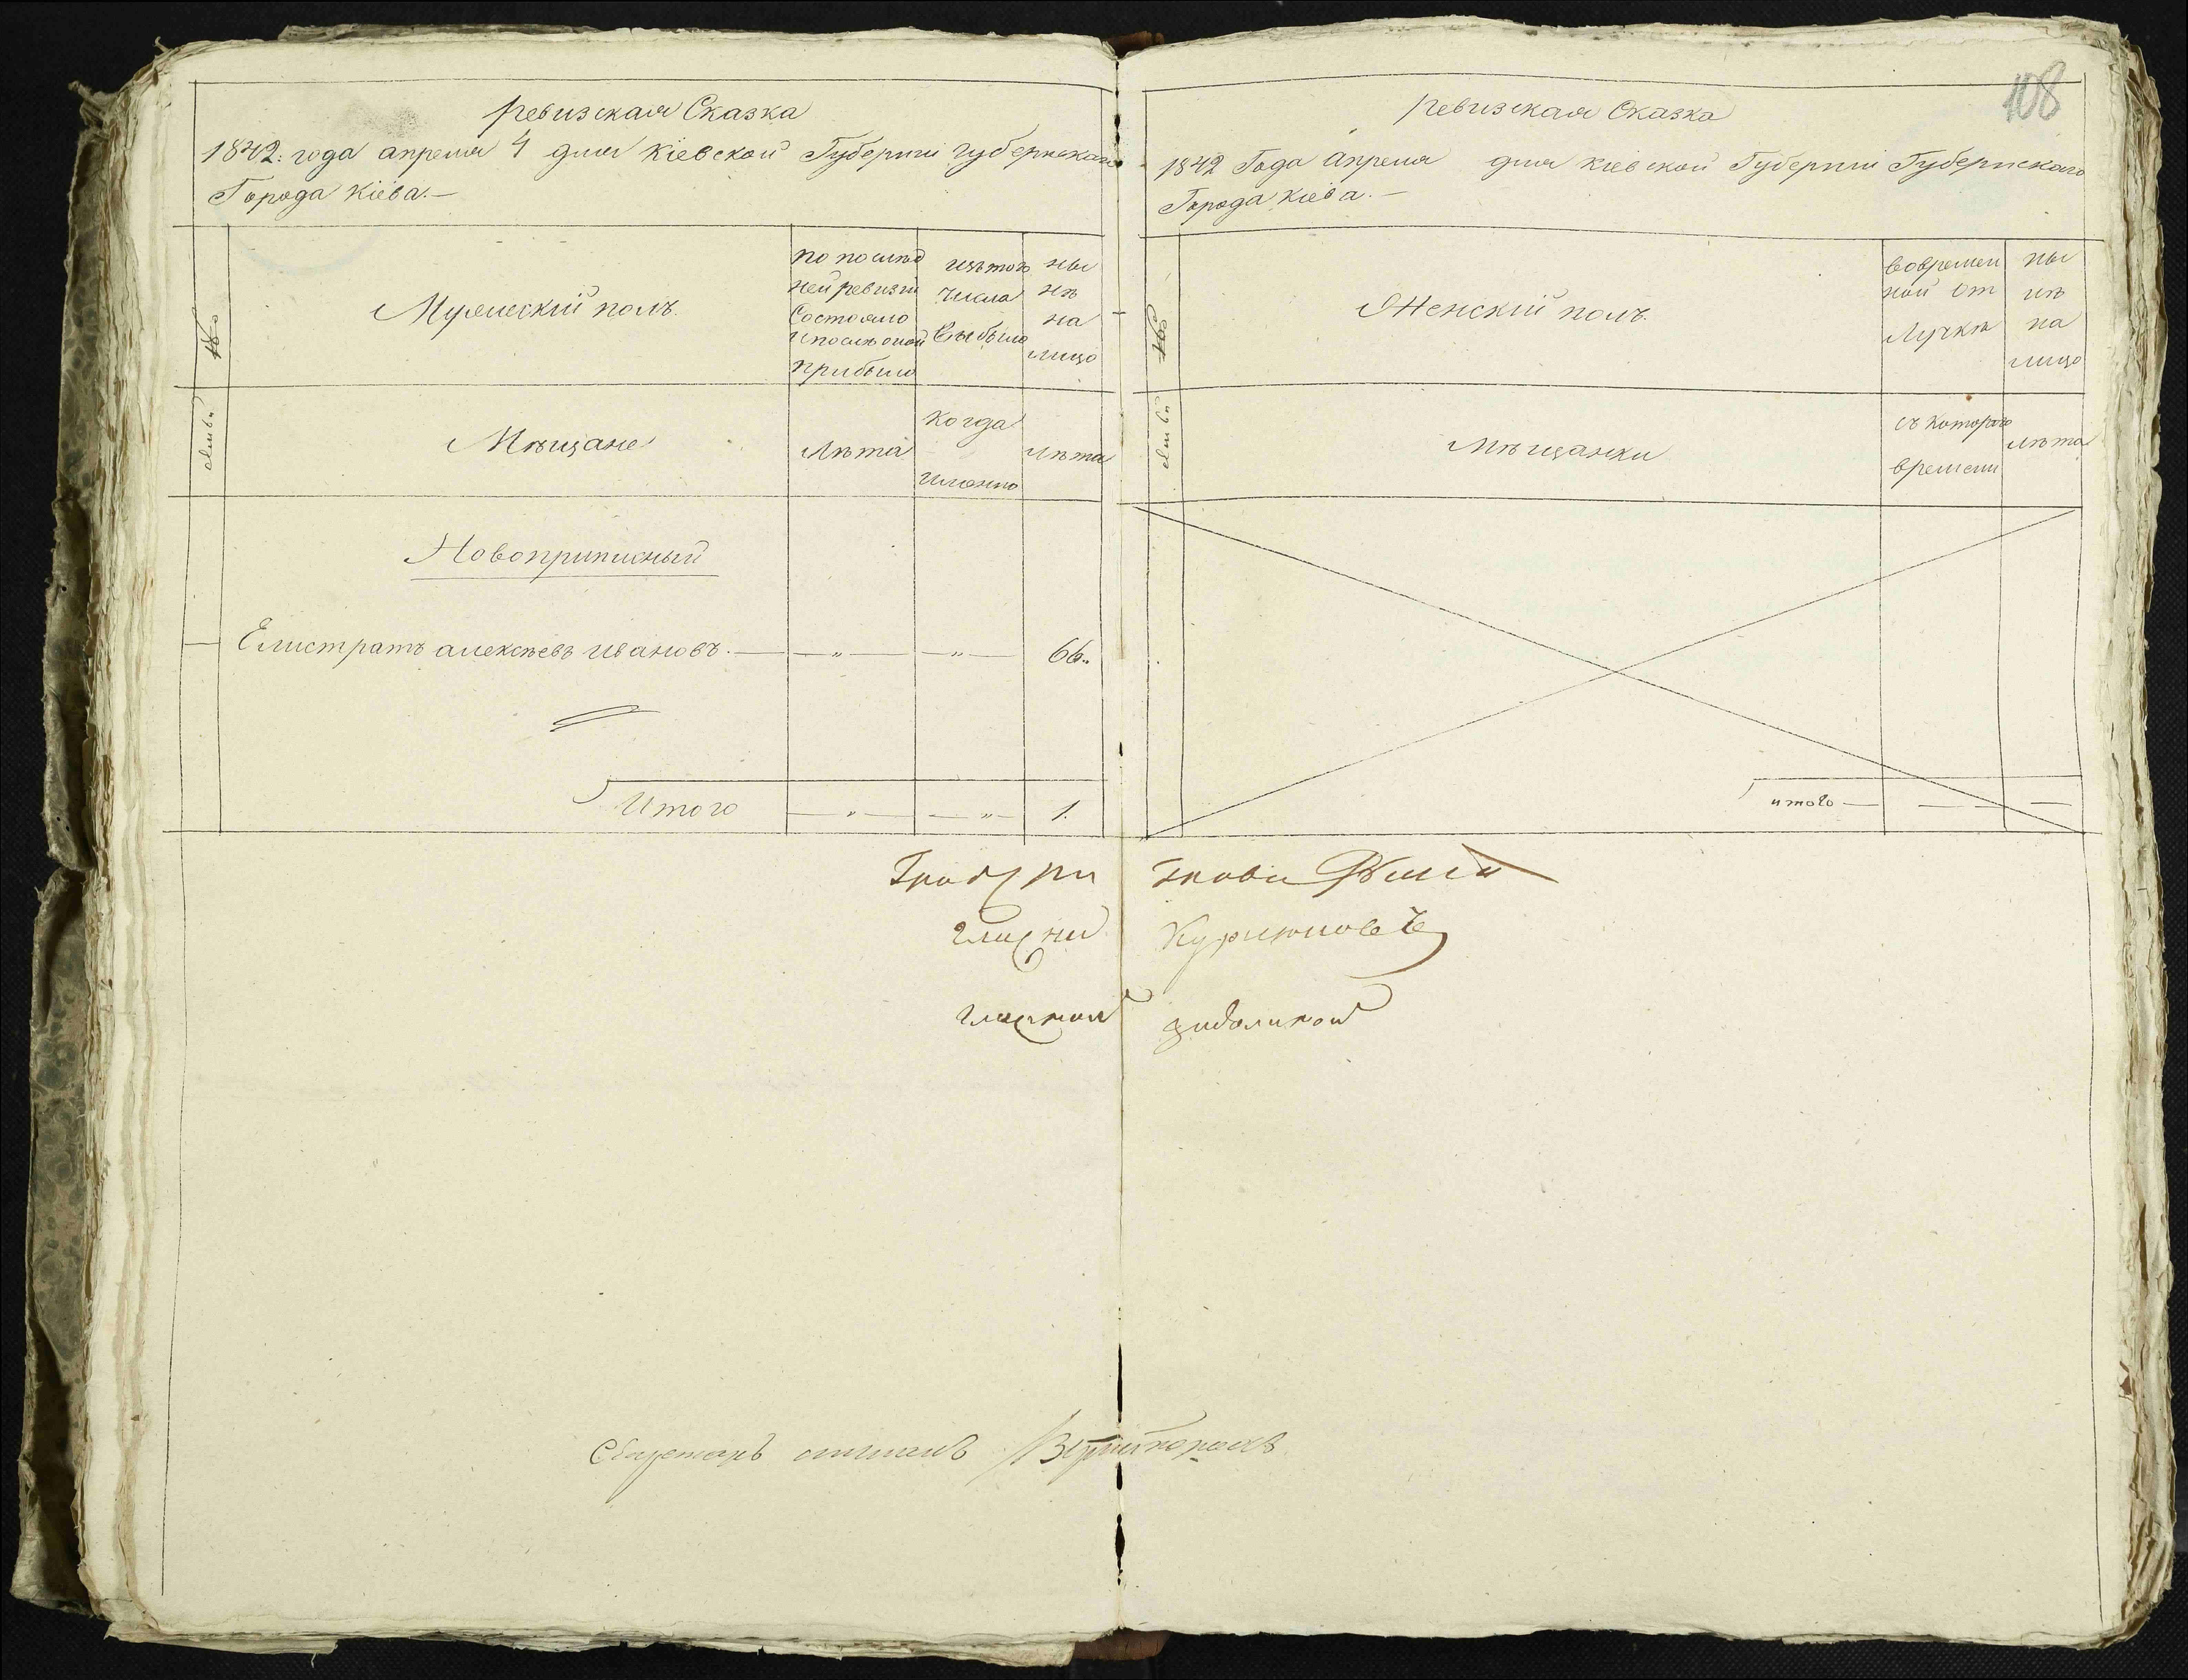 Ревизская Сказка
1842: года апреля 4 дня Кіевской Губерніи Губернскаго
Города Кіева. —
№
Мужескій полъ.
по послѣд
ней ревизіи
Состояло
и послѣ оной
прибыло
изъ того
числа
выбыло
ны
нѣ
на
лицо
Семьи
Мѣщане
Лѣта
Когда
имянно
Лѣта
Новоприписный
Елистратъ алексѣевъ ивановъ. — " — — " — 66.
Итого — " — — " — 1.
108
Ревизская Сказка
1842 Года Апреля дня Кіевской Губерніи Губернскаго
Города Кіева. —
№
Женскій полъ.
вовремен
ной от
лучкѣ
ны
нѣ
на
лицо
Семьи
Мѣщанки
съ котораго
времени
лѣта
итого — — — —
гласный